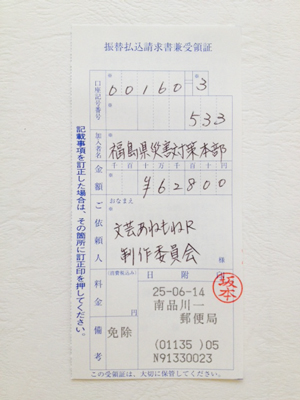 振替払込請求書兼受領証
口座記号番号
00160-3
533
加入者名
福島県災害対策本部
金額
千 百 十 万 千 百 十 円
¥62800
ご依頼人
おなまえ
文芸あねもねR
製作委員会
様
(消費税込み)
料金
円
日附印
坂本
25-06-14
南品川一
郵便局
備考
免除
(01135 )05
N91330023
記載事項を訂正した場合は、その箇所に訂正印を押してください。
この受領証は、大切に保管してください。